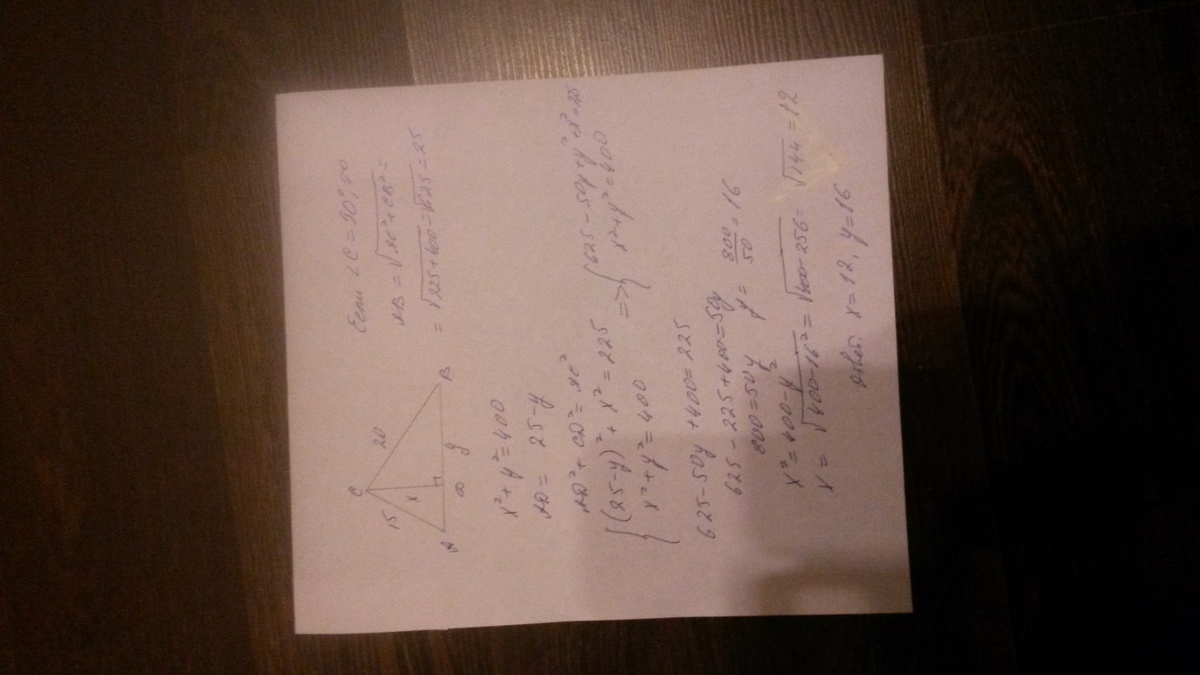 C
15
20
x
A
D
y
B
Если ∠C = 90°, то
AB = √(AC² + CB²) =
= √(225 + 400) = √625 = 25
x² + y² = 400
AD = 25 - y
AD² + CD² = AC²
{ (25 - y)² + x² = 225
x² + y² = 400
=> { 625 - 50y + y² + x² = 225
x² + y² = 400
625 - 50y + 400 = 225
625 - 225 + 400 = 50y
800 = 50y
y = 800/50 = 16
x² = 400 - y²
x = √(400 - 16²) = √(400 - 256) = √144 = 12
Ответ: x = 12, y = 16